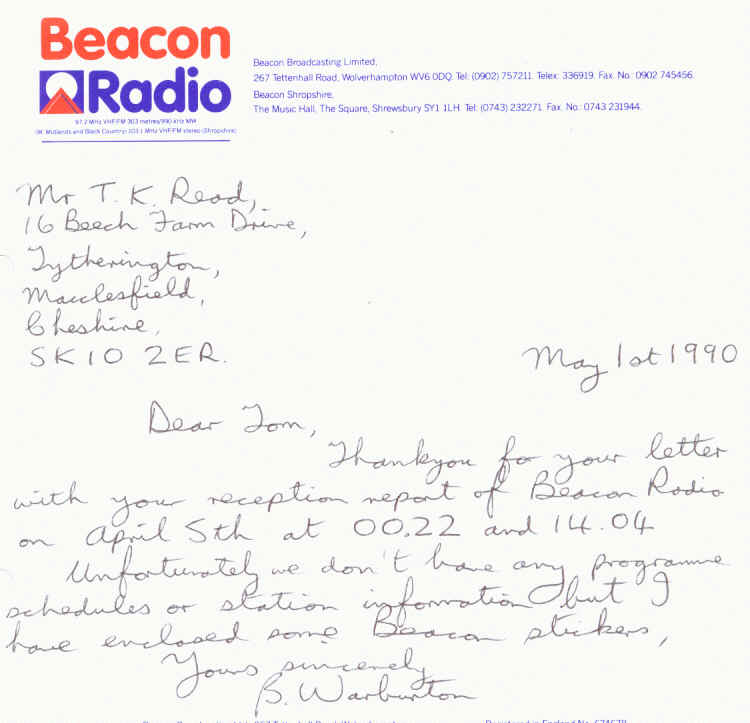 Beacon
Radio
97.2 MHz VHF/FM 303 metres/990 kHz MW
(W. Midlands and Black Country) 103.1 MHz VHF/FM stereo (Shropshire)
Beacon Broadcasting Limited,
267 Tettenhall Road, Wolverhampton WV6 0DQ. Tel: (0902) 757211. Telex: 336919. Fax. No.: 0902 745456.
Beacon Shropshire,
The Music Hall, The Square, Shrewsbury SY1 1LH. Tel: (0743) 232271. Fax. No.: 0743 231944.
Mr T. K. Read,
16 Beech Farm Drive,
Tytherington,
Macclesfield,
Cheshire,
SK10 2ER.
May 1st 1990
Dear Tom,
Thankyou for your letter
with your reception report of Beacon Radio
on April 5th at 00.22 and 14.04
Unfortunately we don't have any programme
schedules or station information but I
have enclosed some Beacon stickers,
Yours sincerely
B. Warburton